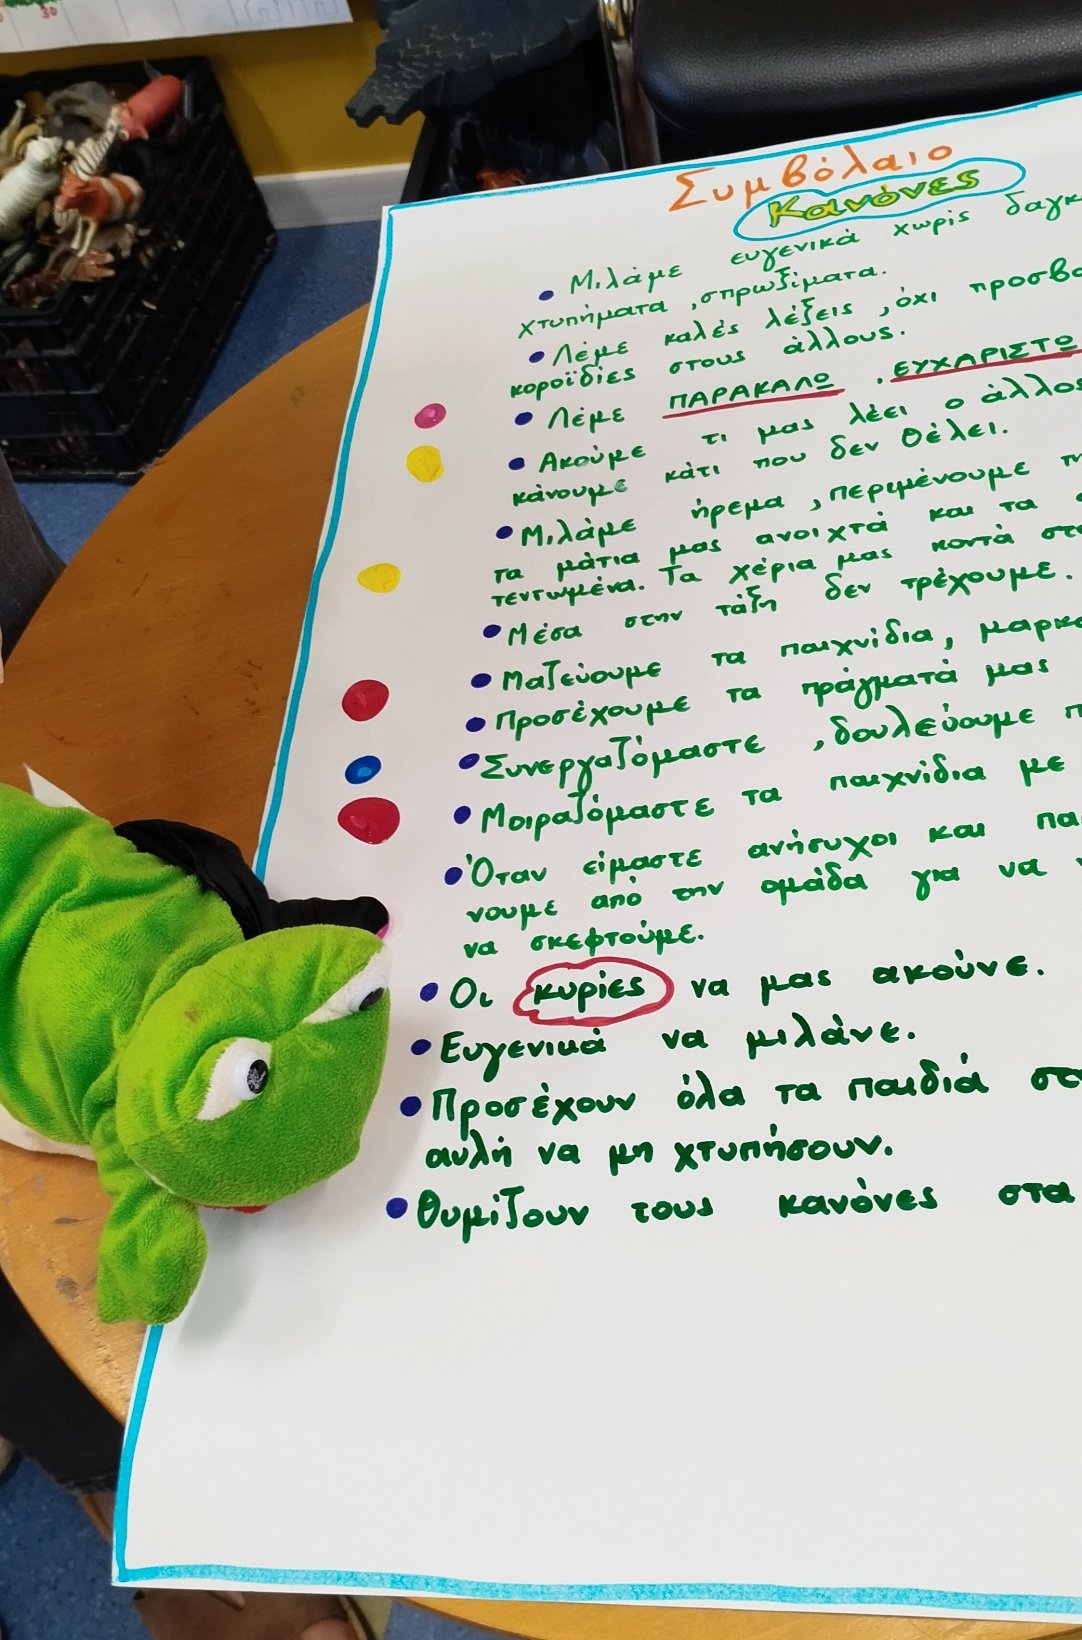 Συμβόλαιο
Κανόνες
• Μιλάμε ευγενικά χωρίς δαγκ
χτυπήματα, σπρωξίματα.
• Λέμε καλές λέξεις, όχι προσβο
κοροϊδίες στους άλλους.
• Λέμε ΠΑΡΑΚΑΛΩ, ΕΥΧΑΡΙΣΤΩ
• Ακούμε τι μας λέει ο άλλος
κάνουμε κάτι που δεν θέλει.
• Μιλάμε ήρεμα, περιμένουμε τη
τα μάτια μας ανοιχτά και τα
τεντωμένα. Τα χέρια μας κοντά στο
• Μέσα στην τάξη δεν τρέχουμε.
• Μαζεύουμε τα παιχνίδια, μαρκα
• Προσέχουμε τα πράγματά μας
• Συνεργαζόμαστε, δουλεύουμε
• Μοιραζόμαστε τα παιχνίδια με
• Όταν είμαστε ανήσυχοι και
νουμε από την ομάδα για να
να σκεφτούμε.
• Οι κυρίες να μας ακούνε.
• Ευγενικά να μιλάνε.
• Προσέχουν όλα τα παιδιά στ
αυλή να μη χτυπήσουν.
• Θυμίζουν τους κανόνες στα